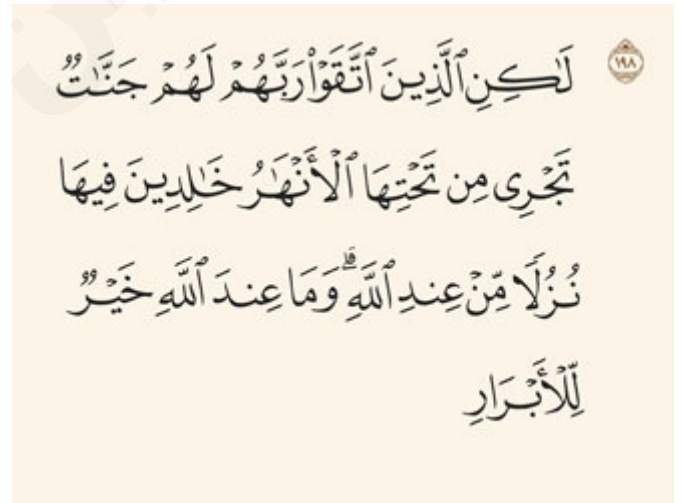 ١٩٨ لَٰكِنِ ٱلَّذِينَ ٱتَّقَوْا۟ رَبَّهُمْ لَهُمْ جَنَّـٰتٌ
تَجْرِى مِن تَحْتِهَا ٱلْأَنْهَـٰرُ خَـٰلِدِينَ فِيهَا
نُزُلًا مِّنْ عِندِ ٱللَّهِ ۗ وَمَا عِندَ ٱللَّهِ خَيْرٌ
لِّلْأَبْرَارِ